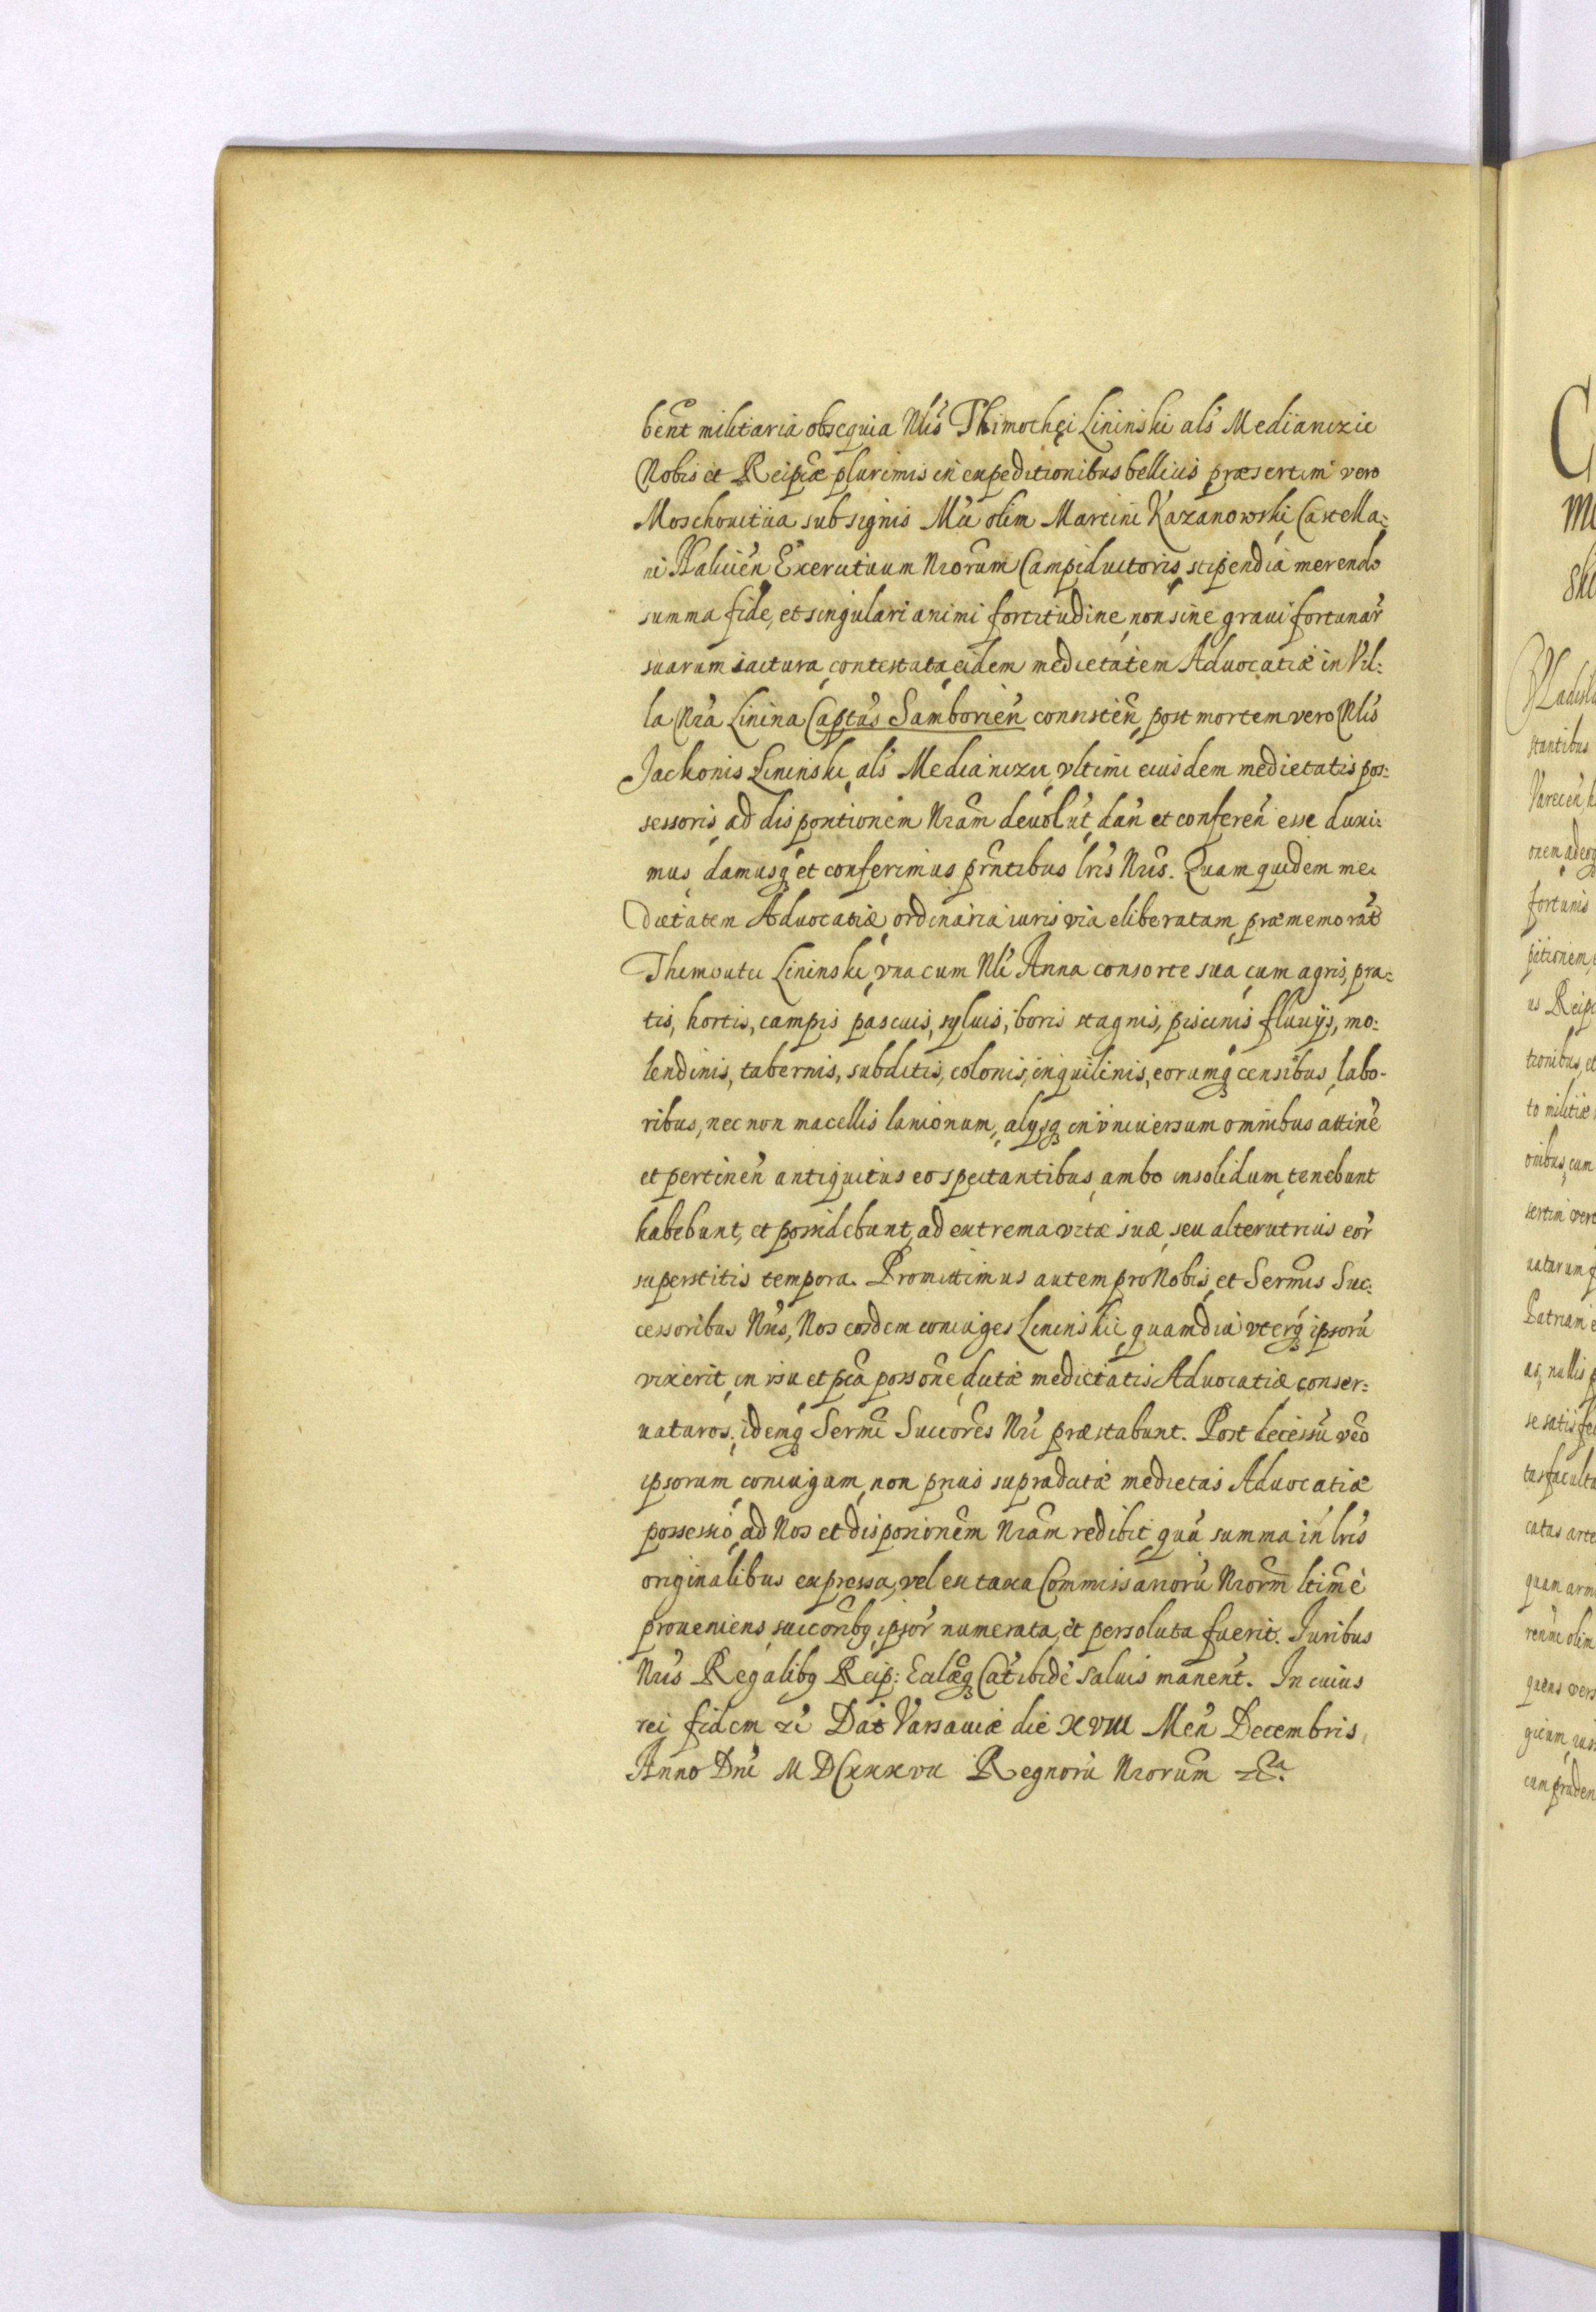 bent militaria obsequia Nlis Thimothęi Lininski als Medianizic
Nobis et Reipcæ plurimis in expeditionibus bellicis præsertim vero
Moschouitica sub signis Mci olim Martini Kazanowski Castella=
ni Halicień Exercituum Nrorum Campiductoris stipendia merendo
summa fide, et singulari animi fortitudine, non sine graui fortunar
suarum iactura, contestata, eidem medietatem Aduocatiæ in Vil=
la Nra Linina Captus Samborień consisteń, post mortem vero Nlis
Jackonis Lininski, als Medianizic, vltimi eiusdem medietatis pos=
sessoris, ad dispositionem Nram deuolut, dań et confereń esse duxi=
mus, damusq et conferimus prntibus lris Nris. Quam quidem me=
dietatem Aduocatiæ, ordinaria iuris via eliberatam, præmemorat
Thimoutei Lininski, vna cum Nli Anna consorte sua, cum agris, pra=
tis, hortis, campis pascuis, syluis, boris stagnis, piscinis fluuijs, mo=
lendinis, tabernis, subditis, colonis, inquilinis, eorumq censibus, labo-
ribus, nec non macellis lanionum, alijsq in vniuersum omnibus attine
et pertineń antiquitus eo spectantibus, ambo insolidum, tenebunt
habebunt, et possidebunt, ad extrema vitæ suæ, seu alterutrius eor
superstitis tempora. Promittimus autem pro Nobis, et Sermis Suc=
cessoribus Nris, Nos eosdem coniuges Lininskie, quamdiu vterq ipsoru
vixerit, in vsu et pca possone, dictæ medietatis Aduocatiæ, conser=
uaturos, idemq Sermi Succores Nri præstabunt. Post decessu vero
ipsorum coniugum, non prius supradictæ medietas Aduocatiæ
possessio, ad Nos et disposionem Nram redibit, qua summa in lris
originalibus expressa, vel ex taxa Commissarioru Nrorm ltime
proueniens, succoribq ipsor numerata, et persoluta fuerit. Iuribus
Nris Regalibq Reip: Eccłæq Catibide saluis manent. In cuius
rei fidem zc Dat Varsauiæ die XVIII Meń Decembris,
Anno Dni MDCXXXVII Regnoru Nrorum zc.